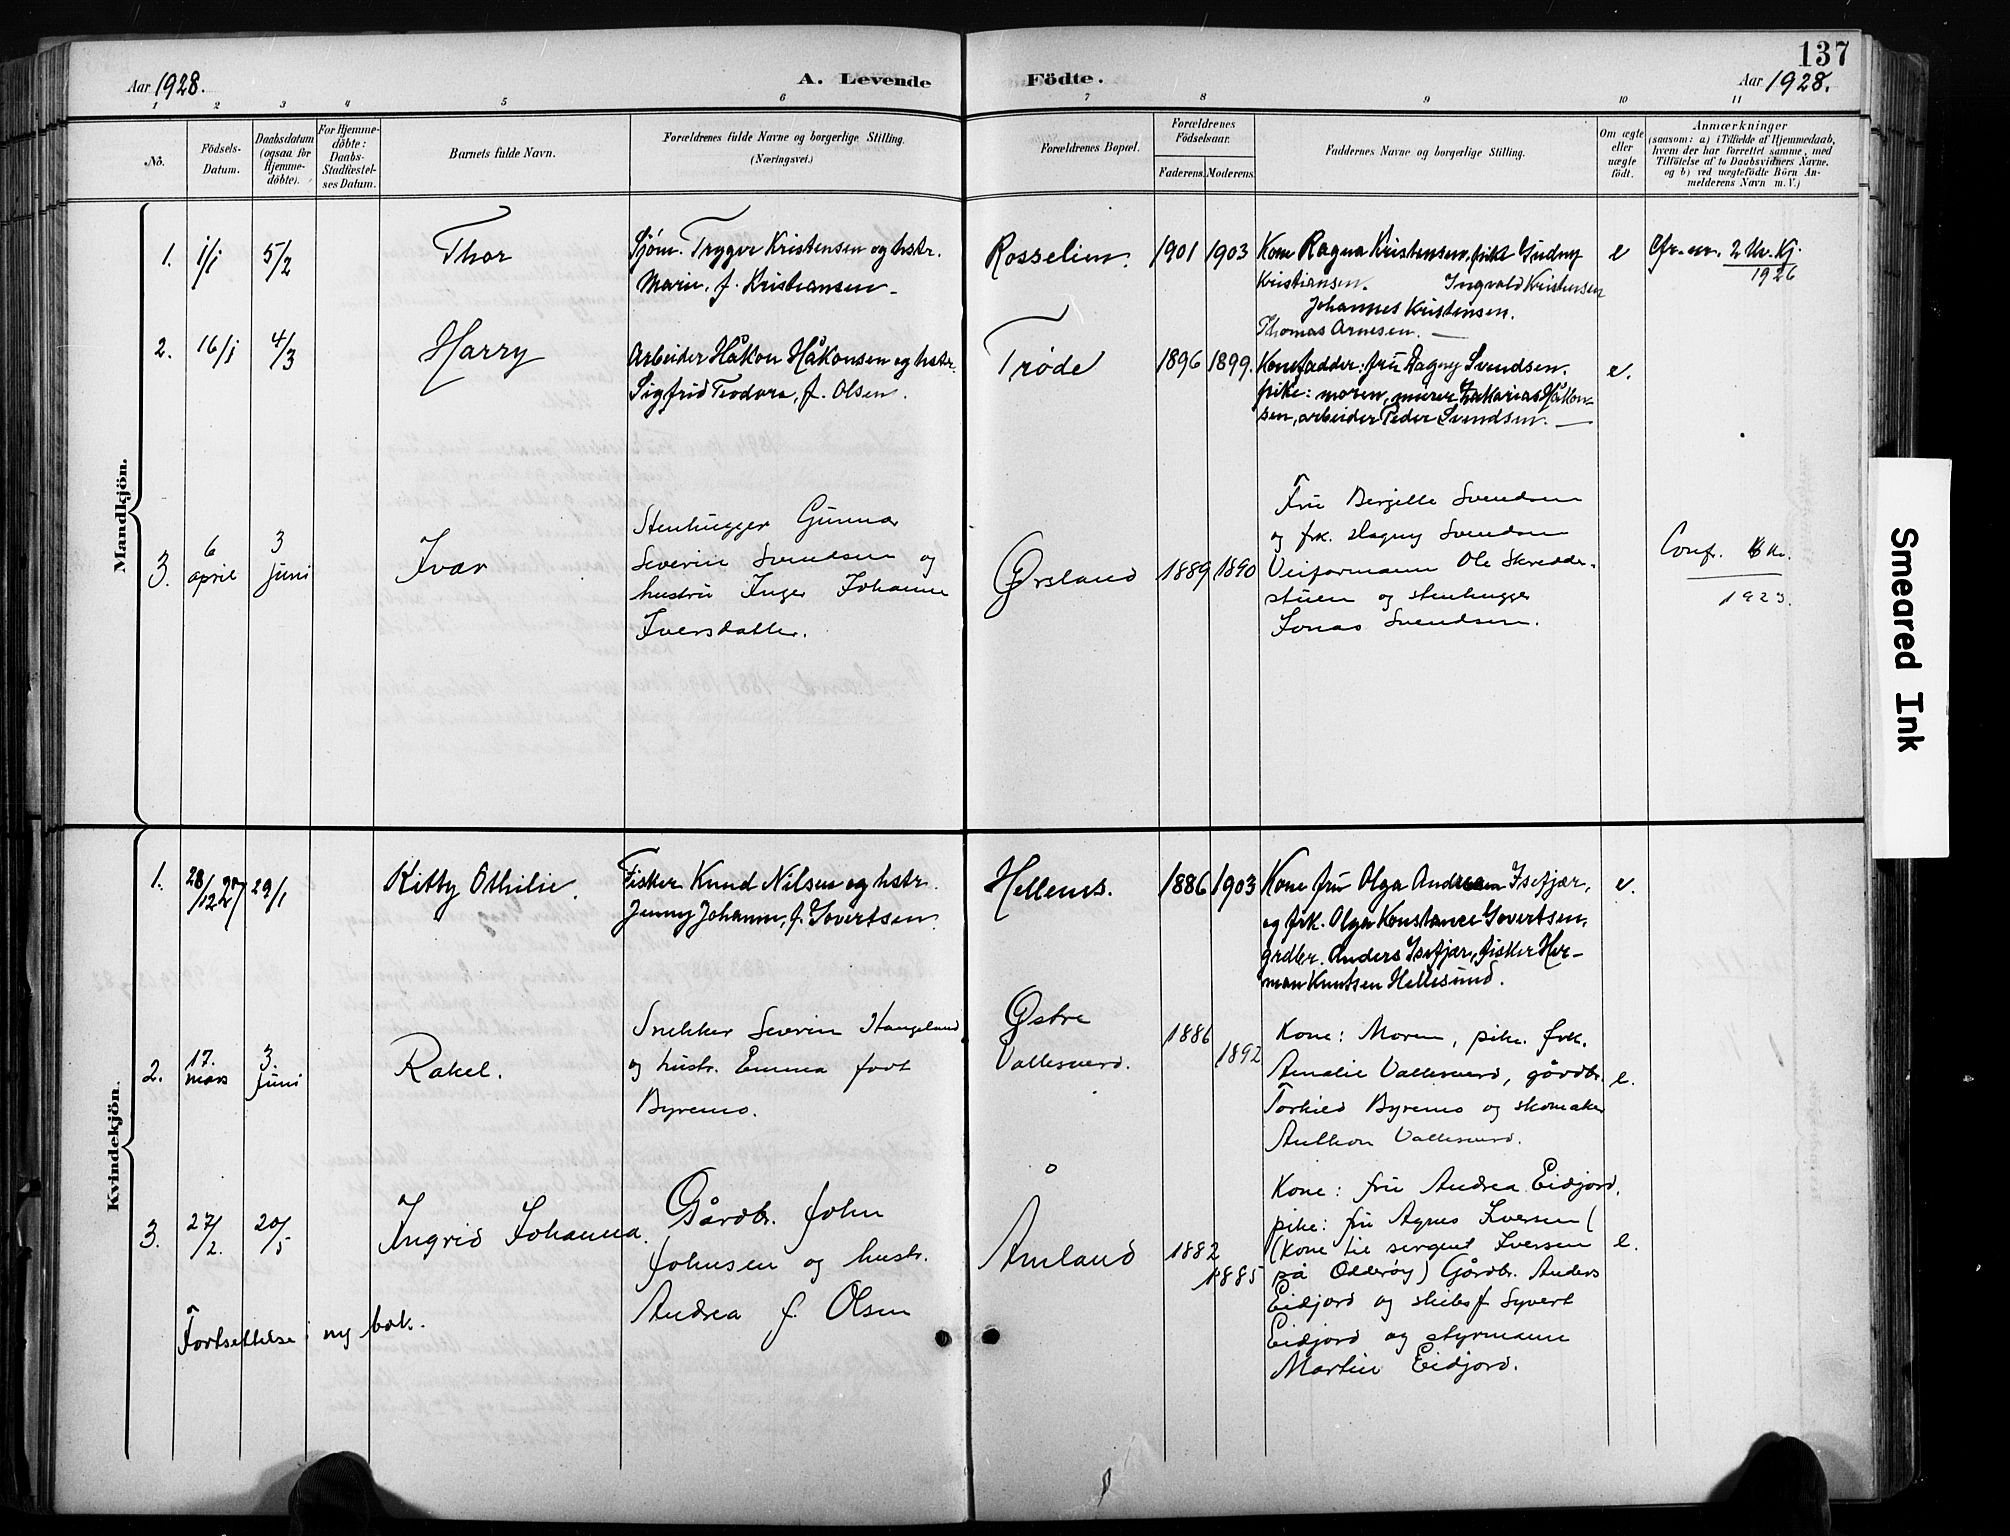 137
Aar 1928.
A. Levende Födte.
Aar 1928.
1 2 3 4 5 6 7 8 9 10 11
No.
Födsels-
Datum.
Daabsdatum
(ogsaa for
Hjemme-
döbte).
For Hjemme-
döbte:
Daabs-
Stadfæstel-
ses Datum.
Barnets fulde Navn.
Forældrenes fulde Navne og borgerlige Stilling.
(Næringsvei.)
Forældrenes Bopæl.
Forældrenes
Födselsaar.
Faderens. Moderens.
Faddernes Navne og borgerlige Stilling.
Om ægte
eller
uægte
födt.
Anmærkninger
(saasom: a) i Tilfælde af Hjemmedaab,
hvem der har forrettet samme, med
Tilföielse af to Daabsvidners Navne.
og b) ved uægtefödte Börn An-
melderens Navn m. V.)
Mandkjön.
1. 1/1 5/2 Thor
Sjøm. Trygve Kristensen og hstr.
Marie, f. Kristiansen.
Rosselien. 1901 1903
Kone Ragna Kristensen, pike Gudny
Kristiansen. Ingvald Kristensen
Johannes Kristensen.
Thomas Arnesen.
e
Cfr. nr. 2 Kv. Kj.
1926
2. 16/1 4/3 Harry
Arbeider Håkon Håkonsen og hstr.
Sigfrid Teodora, f. Olsen.
Trøde 1896 1899.
Konefadder: fru Dagny Svendsen.
pike: moren, murer Zakarias Håkon-
sen, arbeider Peder Svendsen.
e.
3. 6 april 3 juni Ivar
Stenhugger Gunnar
Severin Svendsen og
hustru Inger Johanne
Iversdatter.
Ørsland 1889 1890
Fru Berzelle Svendsen
og frk. Dagny Svendsen
Veiformann Ole Skredder-
stuen og stenhugger
Jonas Svendsen.
Conf.
1923.
Kvindekjön.
1. 28/12 27 29/1 Kitty Othilie.
Fisker Knud Nilsen og hstr.
Jenny Johanne, f. Govertsen.
Hellems. 1886 1903
Kone fru Olga Andrea Isefjær,
og frk. Olga Konstance Govertsen,
grdbr. Anders Isefjær, fisker Her-
man Knutsen Hellesund.
e.
2. 17. mars 3. juni Rakel.
Snekker Severin Haugeland
og hustr. Emma født
Byremo.
Østre
Vallesverd. 1886 1892
Kone: Moren, pike. frk.
Amalie Vallesverd, gårdbr.
Torkild Byremo og skomaker
Anthon Vallesverd.
e.
3. 27/2. 20/5 Ingrid Johanna.
Gårdbr. John
Johnsen og hustr.
Andrea f. Olsen
Åmland 1882 1885
Kone: fru Andrea Eidjord,
pike: fru Agnes Iversen (
(kone til sergent Iversen
på Odderøy) Gårdbr. Anders
Eidjord og skibsf. Syvert
Eidjord og styrmann
Martin Eidjord.
e.
Fortsettelse i ny bok.
Smeared Ink